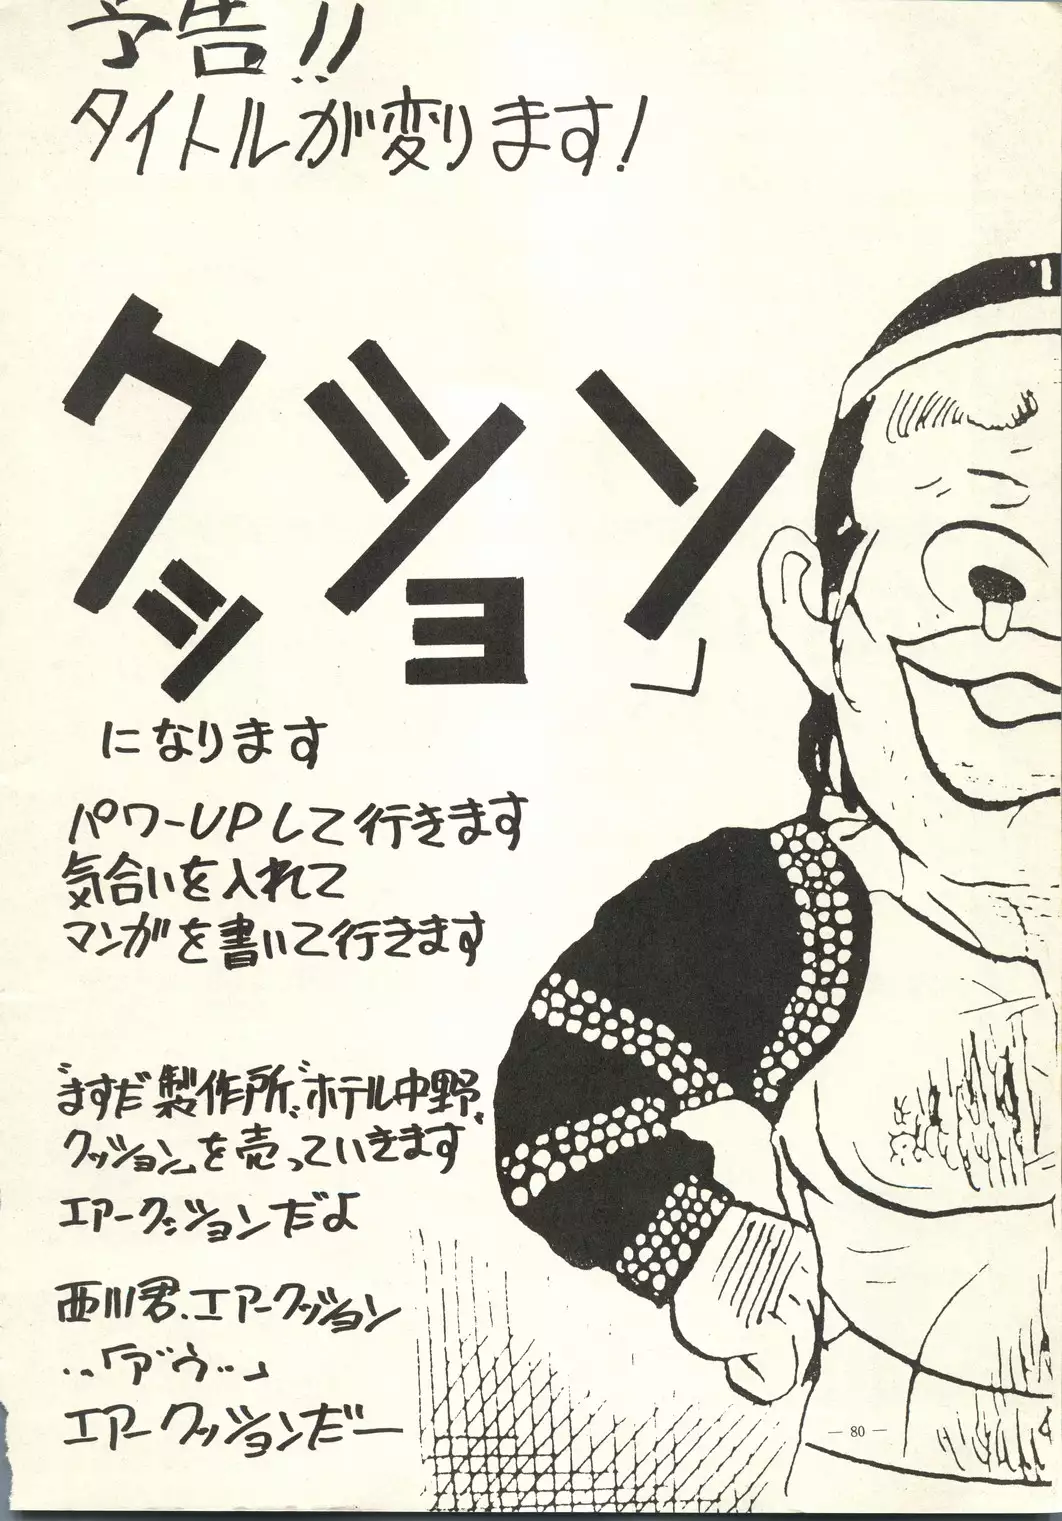 予告!!
タイトルが変ります!
クッション」
になります
パワーUPして行きます
気合いを入れて
マンガを書いて行きます
"ますだ製作所"ホテル中野、
クッション」を売っていきます
エアークッションだよ
西川君、エアークッション
‥「アヴ‥」
エアークッションだー
— 80 —